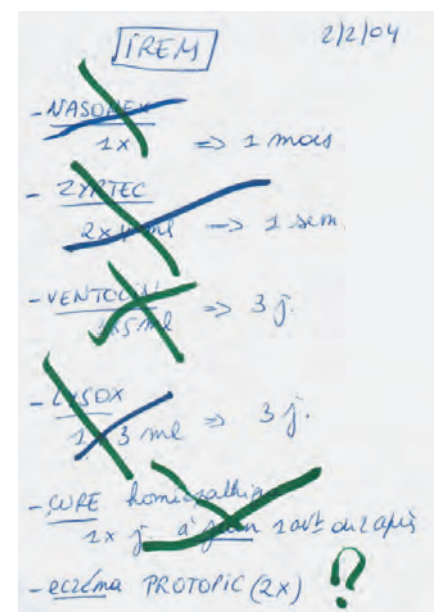 IREM 2/2/04
- NASONEX
1x => 1 mois
- ZYRTEC
2x ml -> 1 sem.
- VENTOLIN
x5ml => 3 j.
- LYSOX
1 3 ml => 3 j.
- CURE homéopathique
1x j. à jeun 1 avt ou 2 après
- eczéma PROTOPIC (2x) ?